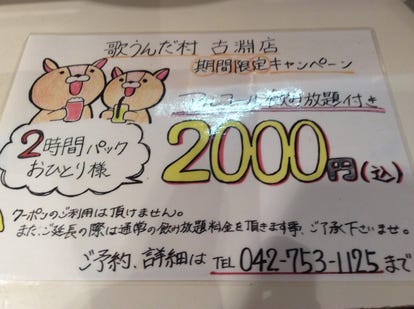 歌うんだ村 古淵店
期間限定キャンペーン
アルコール飲み放題付き
2時間パック
おひとり様
2000円(込)
クーポンのご利用は頂けません。
また、ご延長の際は通常の飲み放題料金を頂きます事、ご了承下さいませ。
ご予約、詳細は TEL 042-753-1125まで